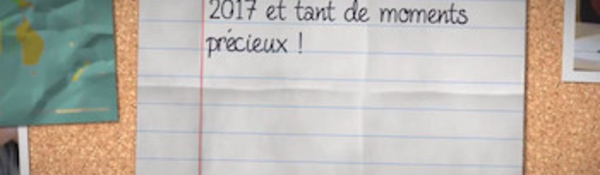 2017 et tant de moments
précieux !